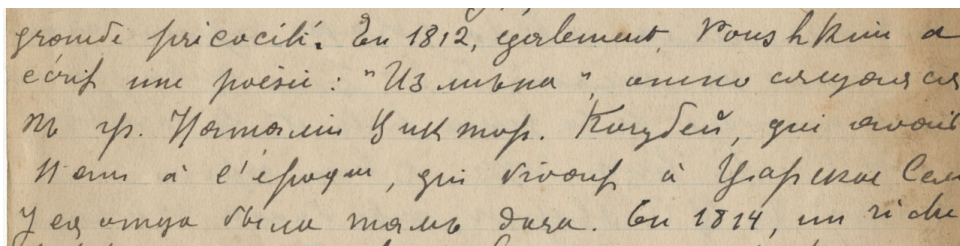 grande précocité. En 1812, également, Poushkin a
écrit une poésie: "Измѣна", относящаяся
къ гр. Наталіи Виктор. Кочубей, qui avait
ans à l'époque, qui vivait à Царское Село
У ея отца была тамъ дача. En 1814, un riche